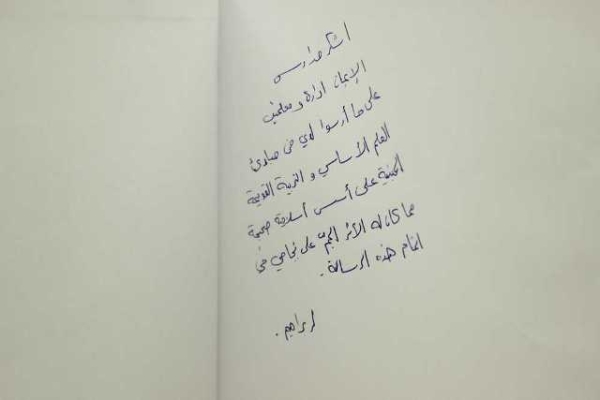 اشكر مدارس
الإيمان ادارة و معلمين
على ما أرسوا لدي من مبادئ
العلم الأساسي و التربية القويمة
المبنية على أسس أسلامية صحيحة
مما كان له الأثر الجمّ على نجاحي في
اتمام هذه الرسالة .
ابراهيم .